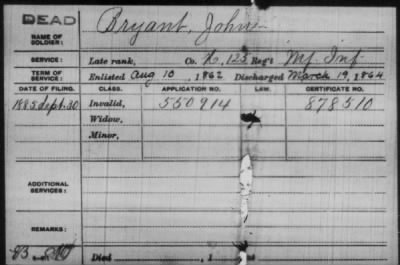 DEAD
NAME OF SOLDIER: Bryant, John
SERVICE: Late rank, Co. K, 125 Reg't Inf
TERM OF SERVICE: Enlisted Aug 10, 1862 Discharged March 19, 1864
DATE OF FILING. CLASS. APPLICATION NO. LAW. CERTIFICATE NO.
1885 Sept. 30 Invalid, 550914 878510
Widow,
Minor,
ADDITIONAL SERVICES:
REMARKS:
Died , 1